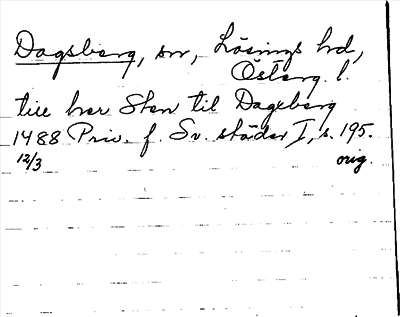 Dagsberg, sn, Lösings hd,
Österg. l.
till herr Sten til Dageberg
1488 Priv. f. Sv. städer I, s. 195.
12/3 orig.